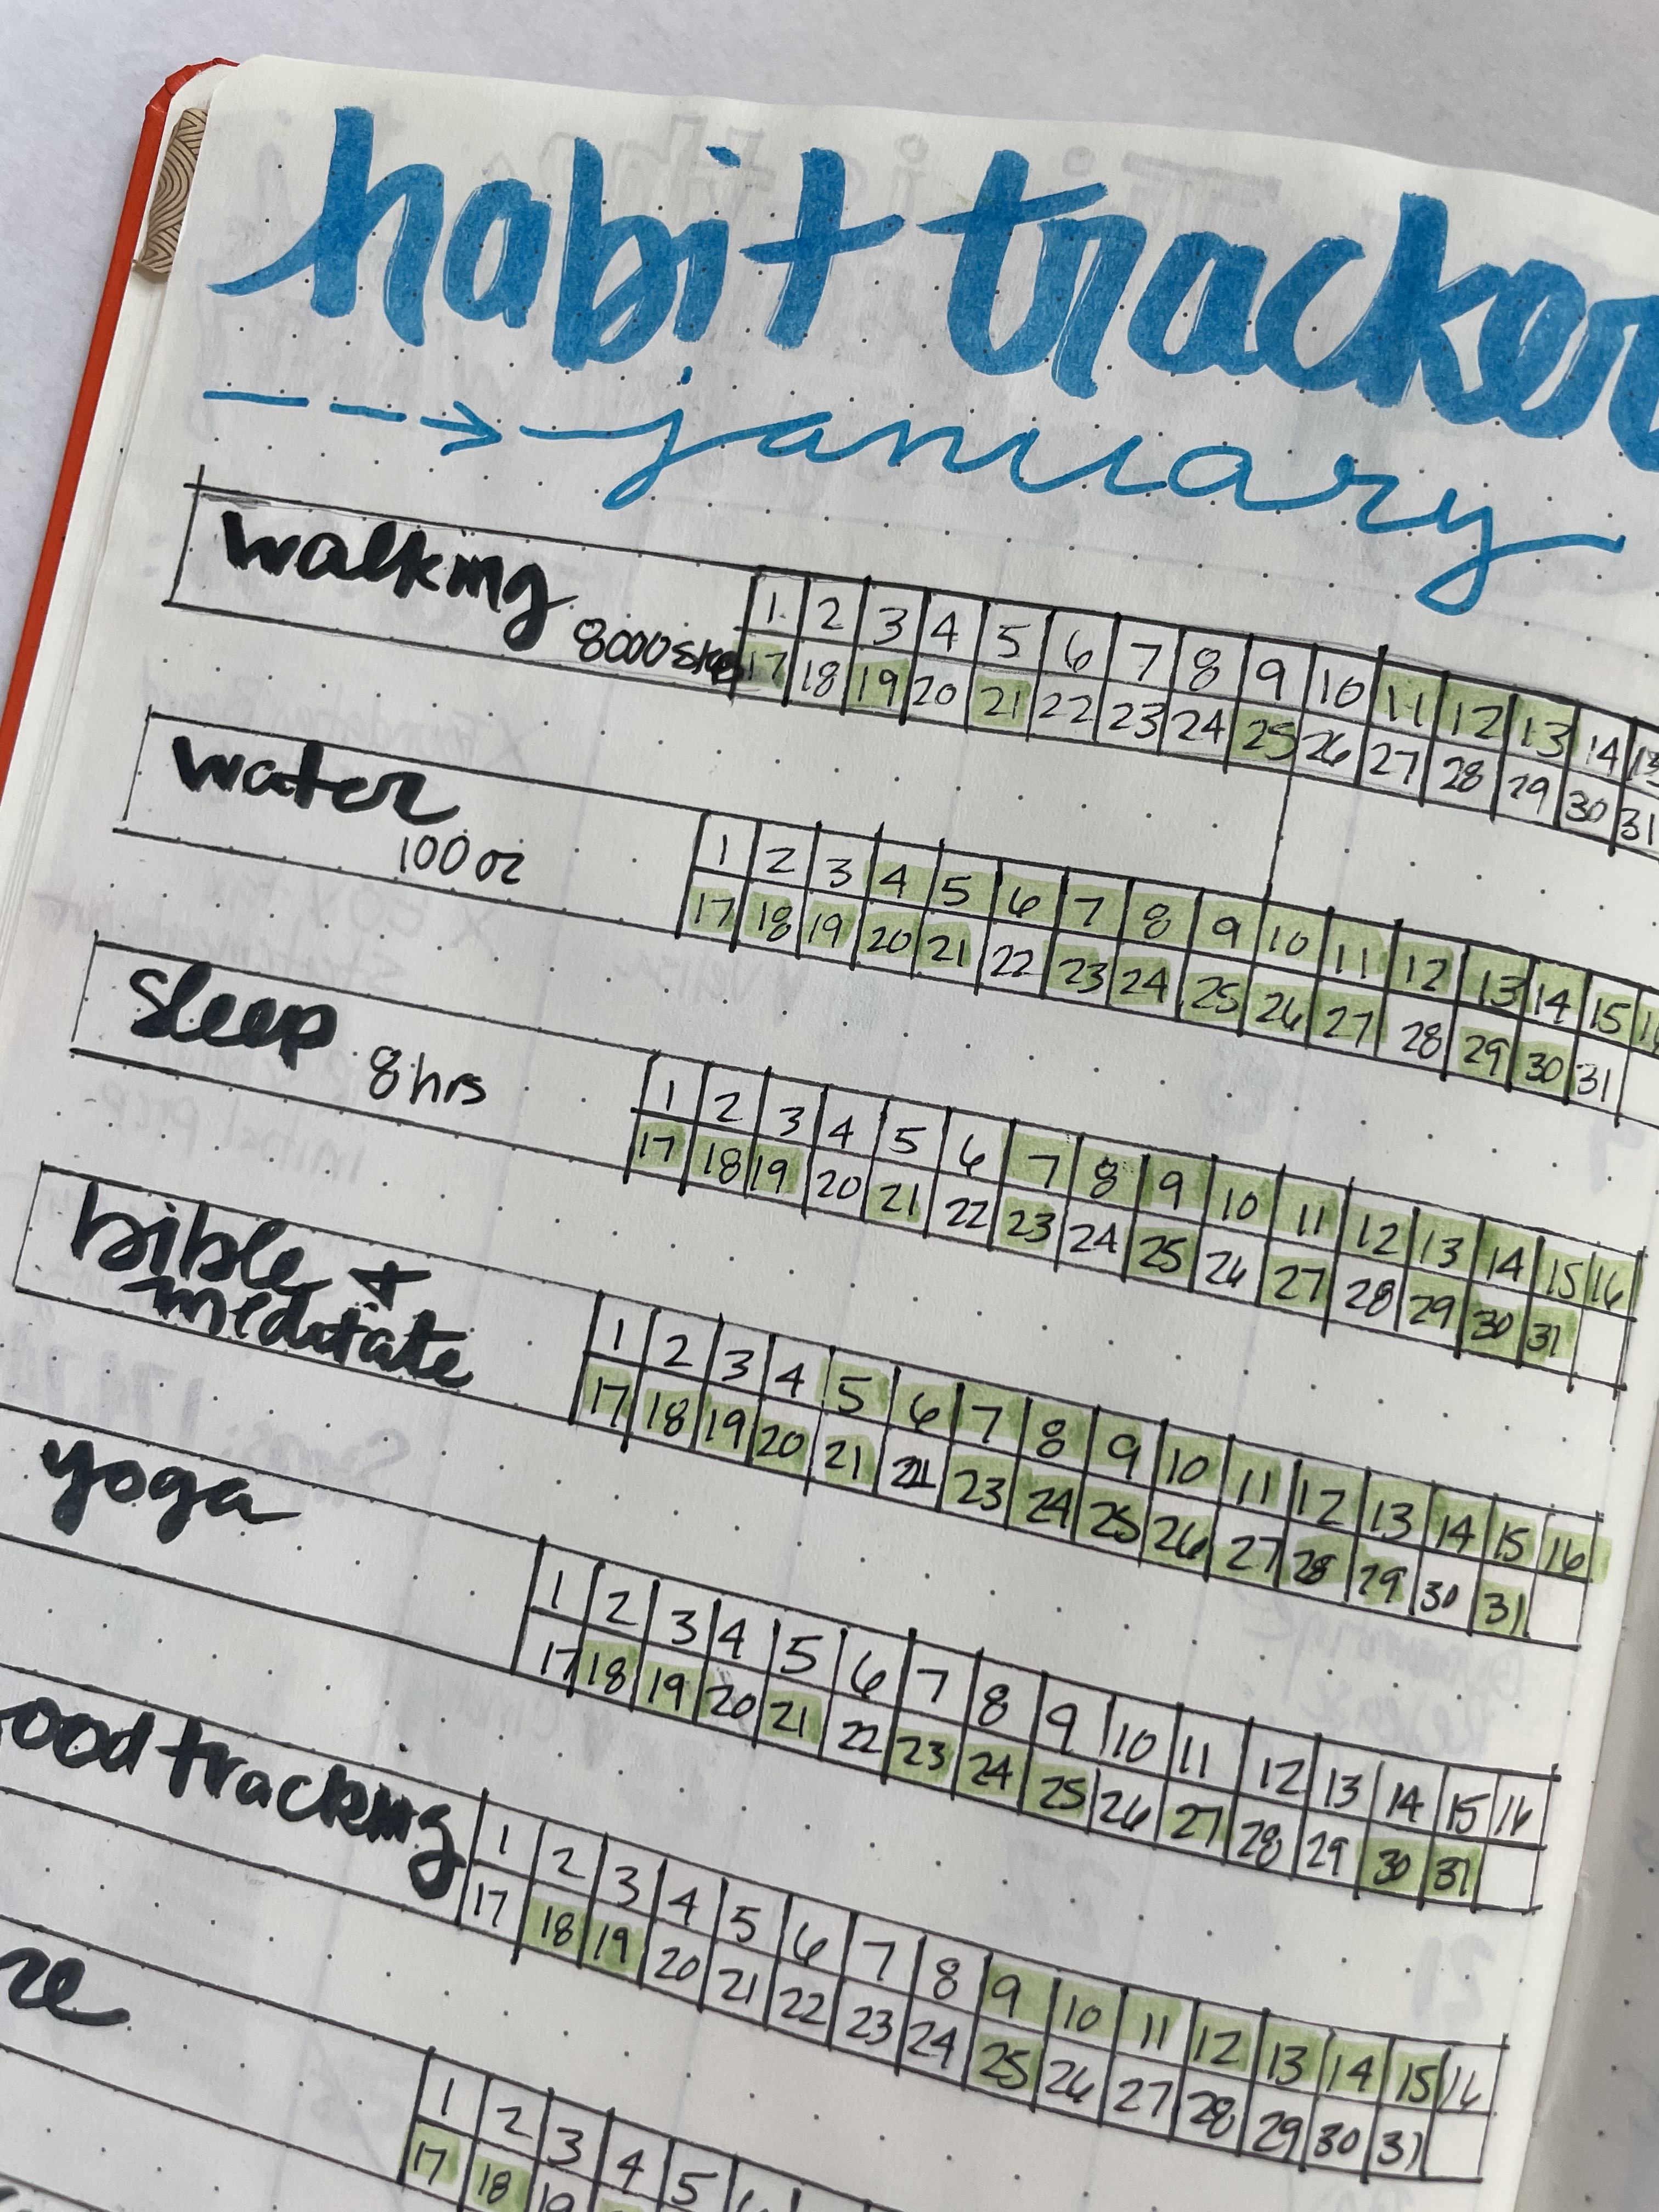 habit tracker
january
walking
8000 steps
1 2 3 4 5 6 7 8 9 10 11 12 13 14 15
17 18 19 20 21 22 23 24 25 26 27 28 29 30 31
water
100 oz
1 2 3 4 5 6 7 8 9 10 11 12 13 14 15
17 18 19 20 21 22 23 24 25 26 27 28 29 30 31
sleep
8 hrs
1 2 3 4 5 6 7 8 9 10 11 12 13 14 15 16
17 18 19 20 21 22 23 24 25 26 27 28 29 30 31
bible +
meditate
1 2 3 4 5 6 7 8 9 10 11 12 13 14 15 16
17 18 19 20 21 22 23 24 25 26 27 28 29 30 31
yoga
1 2 3 4 5 6 7 8 9 10 11 12 13 14 15 16
17 18 19 20 21 22 23 24 25 26 27 28 29 30 31
ood tracking
1 2 3 4 5 6 7 8 9 10 11 12 13 14 15 16
17 18 19 20 21 22 23 24 25 26 27 28 29 30 31
re
1 2 3 4 5
17 18 19